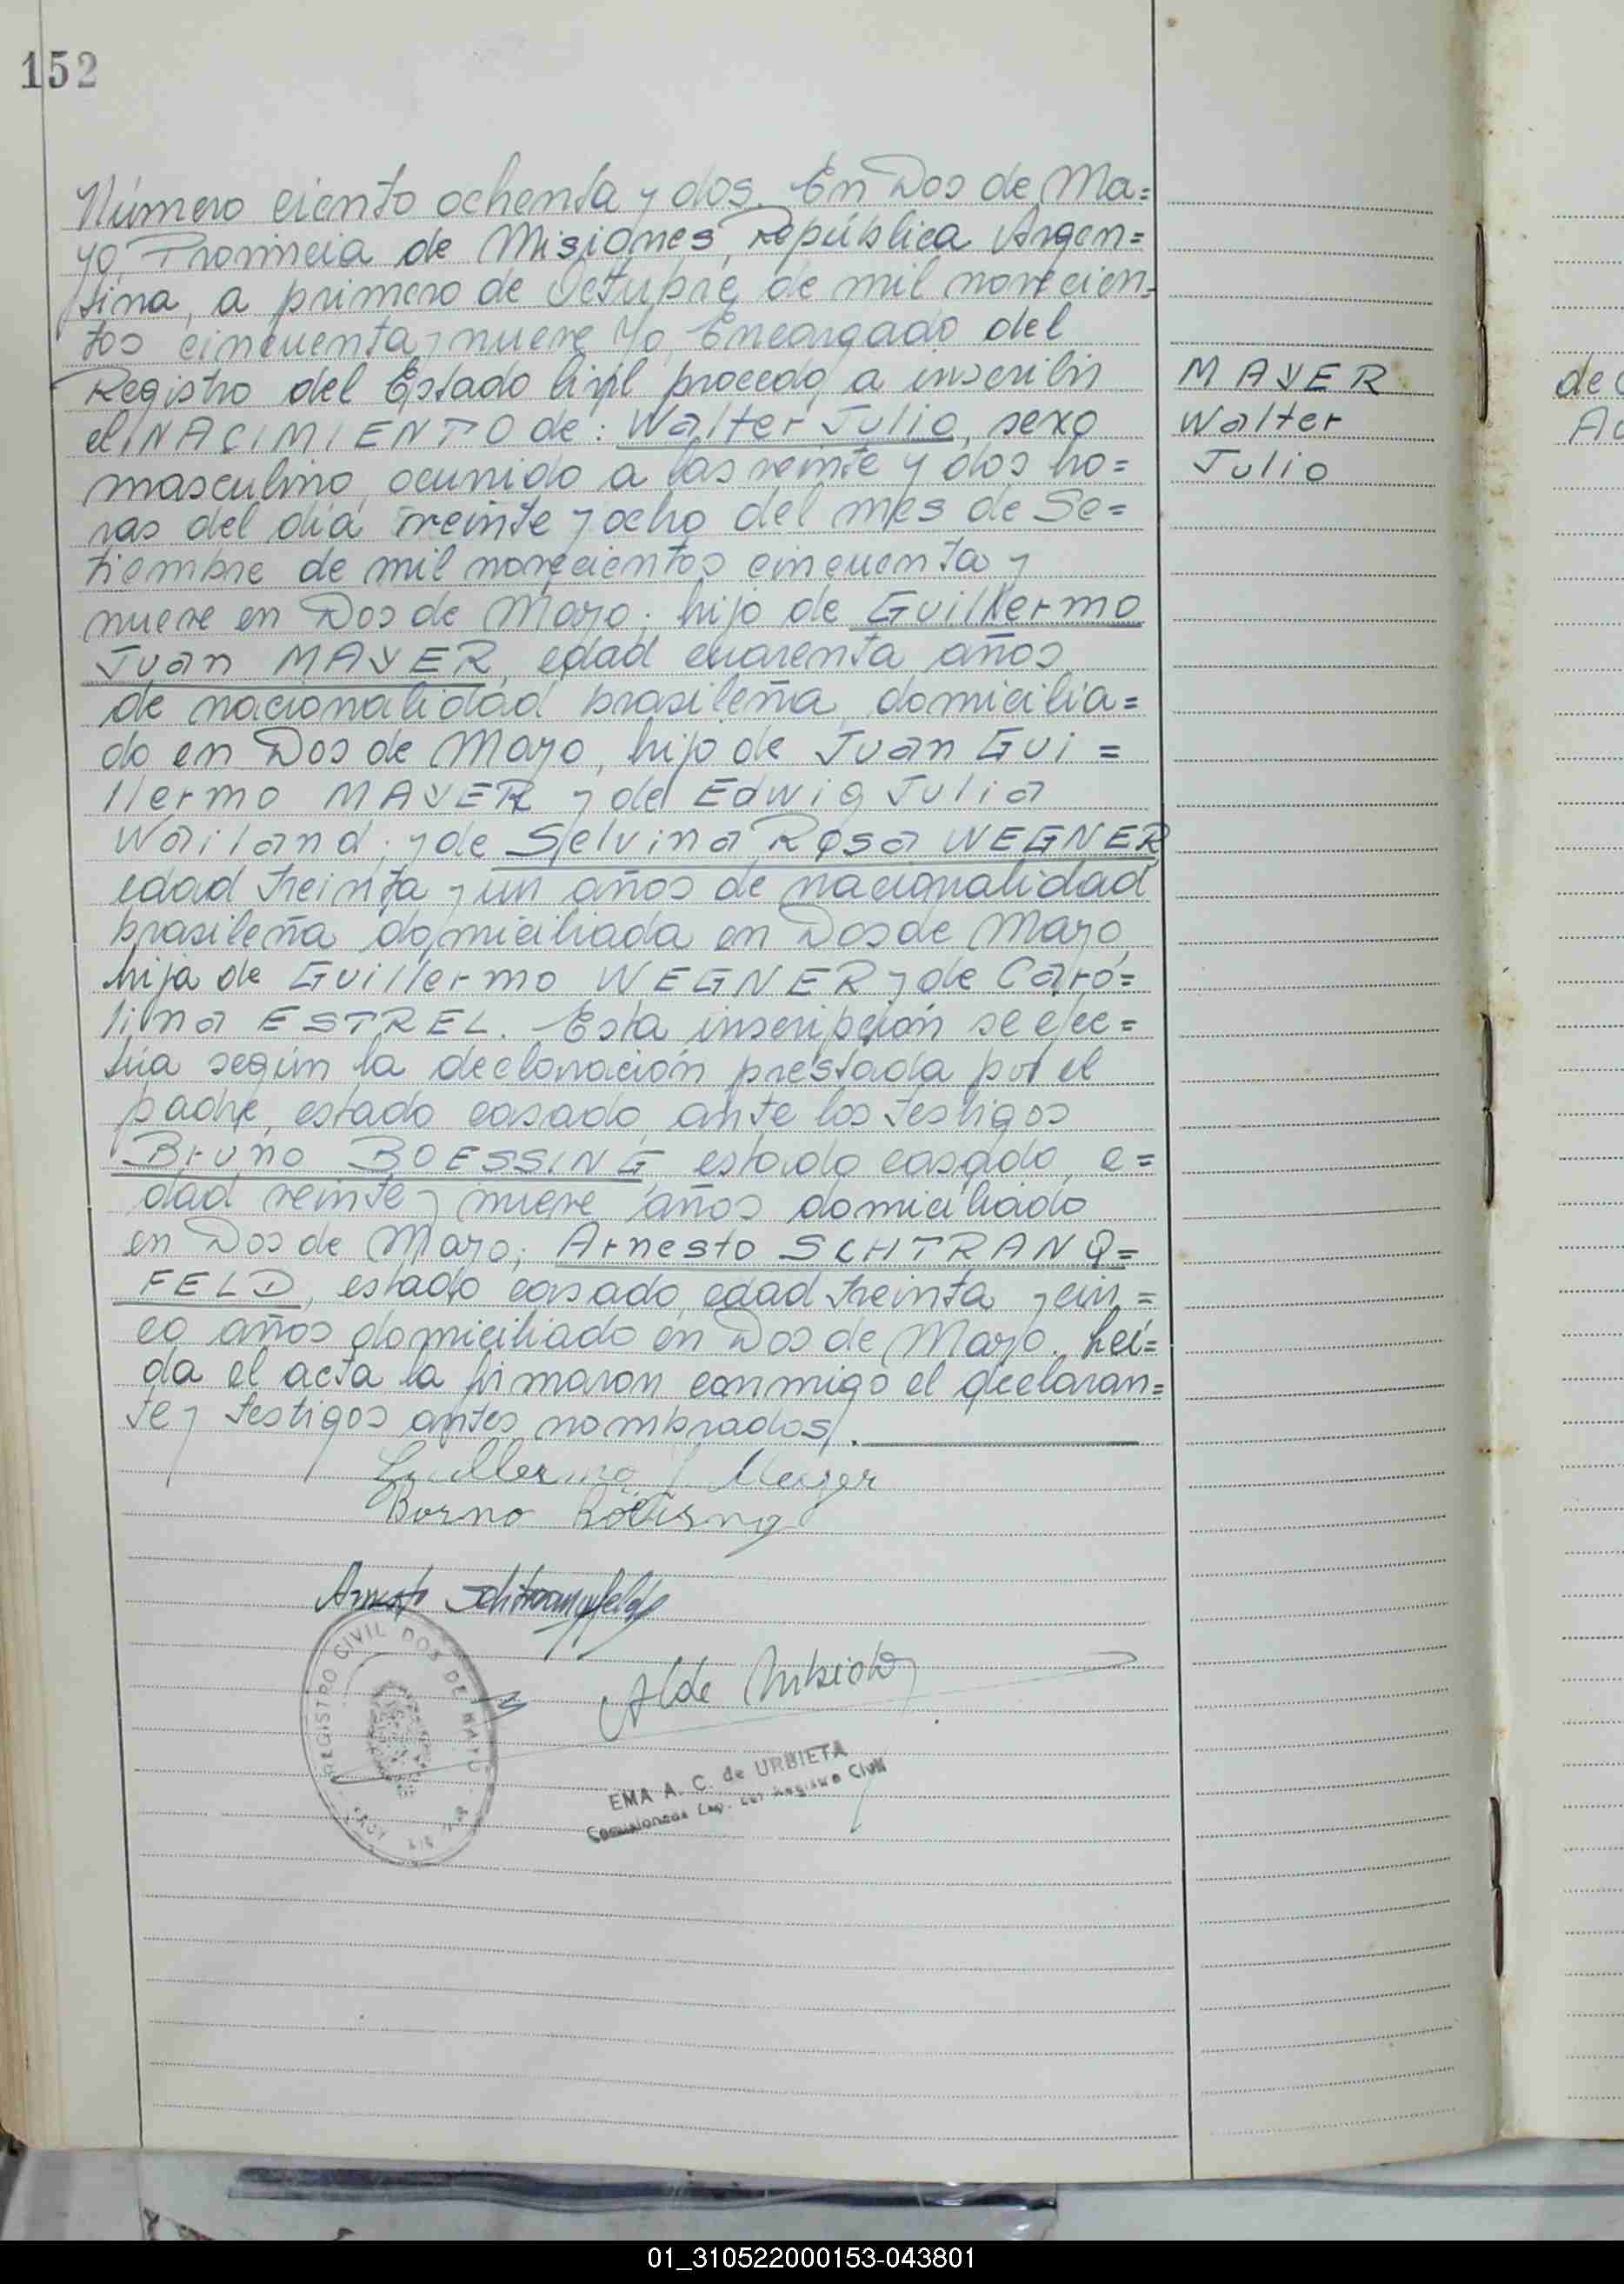 152
Número ciento ochenta y dos. En Dos de Ma=
yo, Provincia de Misiones, República Argen=
tina, a primero de Octubre de mil novecien=
tos cincuenta y nueve Yo, Encargado del
Registro del Estado Civil procedo a inscribir
el NACIMIENTO de: Walter Julio, sexo
masculino, ocurrido a las veinte y dos ho=
ras del día veinte y ocho del mes de Se=
tiembre de mil novecientos cincuenta y
nueve en Dos de Mayo; hijo de Guillermo
Juan MAYER, edad cuarenta años
de nacionalidad brasileña, domicilia=
do en Dos de Mayo, hijo de Juan Gui=
llermo MAYER y de Edwig Julia
Wailand; y de Selvina Rosa WEGNER
edad treinta y un años de nacionalidad
brasileña domiciliada en Dos de Mayo,
hija de Guillermo WEGNER y de Caro=
lina ESTREL. Esta inscripción se efec=
túa según la declaración prestada por el
padre, estado casado, ante los testigos
Bruno BOESSING, estado casado, e=
dad veinte y nueve años domiciliado
en Dos de Mayo; Arnesto SCHTRANQ=
FELD, estado casado, edad treinta y cin=
co años domiciliado en Dos de Mayo. Leí=
da el acta la firmaron conmigo el declaran=
te y testigos antes nombrados.
MAYER
Walter
Julio
Guillermo J Mayer
Borno
Arnesto
REGISTRO CIVIL DOS DE MAYO
EMA A. C. de URBIETA
Registro Civil
de
01_310522000153-043801